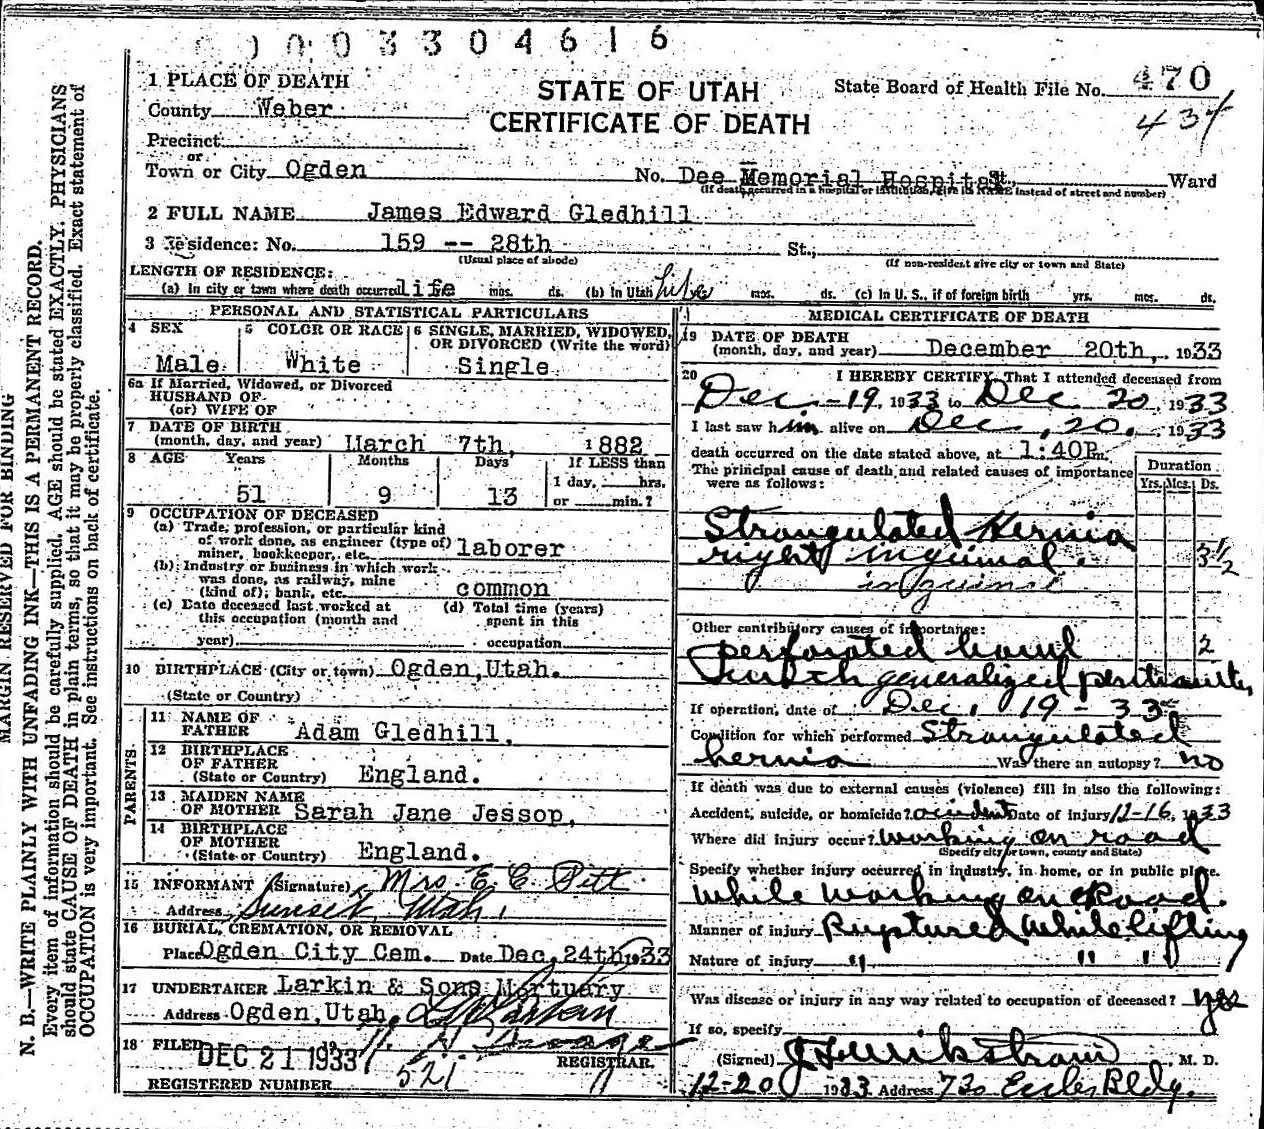 0 0 0 3 3 0 4 6 1 6
1 PLACE OF DEATH
STATE OF UTAH
CERTIFICATE OF DEATH
State Board of Health File No. 470
434
County Weber
Precinct
or
Town or City Ogden No. Dee Memorial Hospital St., Ward
(If death occurred in a hospital or institution, give its NAME instead of street and number)
2 FULL NAME James Edward Gledhill
3 Residence: No. 159 -- 28th St.,
(Usual place of abode) (If non-resident give city or town and State)
LENGTH OF RESIDENCE:
(a) In city or town where death occurred life mos. ds. (b) In Utah life mos. ds. (c) In U. S., if of foreign birth yrs. mos. ds.
PERSONAL AND STATISTICAL PARTICULARS
4 SEX
Male
5 COLOR OR RACE
White
6 SINGLE, MARRIED, WIDOWED,
OR DIVORCED (Write the word)
Single
6a If Married, Widowed, or Divorced
HUSBAND OF
(or) WIFE OF
7 DATE OF BIRTH
(month, day, and year) March 7th, 1882
8 AGE Years Months Days If LESS than
1 day, hrs.
51 9 13 or min.?
9 OCCUPATION OF DECEASED
(a) Trade, profession, or particular kind
of work done, as engineer (type of)
miner, bookkeeper, etc. laborer
(b) Industry or business in which work
was done, as railway, mine
(kind of); bank, etc. common
(c) Date deceased last worked at
this occupation (month and
year)
(d) Total time (years)
spent in this
occupation
10 BIRTHPLACE (City or town) Ogden, Utah.
(State or Country)
PARENTS
11 NAME OF
FATHER Adam Gledhill,
12 BIRTHPLACE
OF FATHER
(State or Country) England.
13 MAIDEN NAME
OF MOTHER Sarah Jane Jessop,
14 BIRTHPLACE
OF MOTHER
(State or Country) England.
15 INFORMANT (Signature) Mrs. E. C. Pett
Address Sunset, Utah.
16 BURIAL, CREMATION, OR REMOVAL
Place Ogden City Cem. Date Dec. 24th 1933
17 UNDERTAKER Larkin & Sons Mortuary
Address Ogden, Utah.
18 FILED DEC 21 1933
REGISTRAR.
REGISTERED NUMBER 521
MEDICAL CERTIFICATE OF DEATH
19 DATE OF DEATH
(month, day, and year) December 20th, 1933
20 I HEREBY CERTIFY, That I attended deceased from
Dec. -19, 1933 to Dec 20, 1933
I last saw him alive on Dec, 20, 1933
death occurred on the date stated above, at 1:40P m.
The principal cause of death and related causes of importance
were as follows:
Duration
Yrs. Mos. Ds.
Strangulated Hernia
right inguinal. 3 1/2
inguinal
Other contributory causes of importance:
perforated bowel 2
with generalized peritonitis
If operation, date of Dec, 19 - 33
Condition for which performed Strangulated
hernia Was there an autopsy? no
If death was due to external causes (violence) fill in also the following:
Accident, suicide, or homicide? accident Date of injury 12-16, 1933
Where did injury occur? working on road
(Specify city or town, county and State)
Specify whether injury occurred in industry, in home, or in public place.
While working on Road.
Manner of injury Ruptured while lifting
Nature of injury " " "
Was disease or injury in any way related to occupation of deceased? yes
If so, specify
(Signed) M. D.
12-20 1933 Address 730 Eccles Bldg.
MARGIN RESERVED FOR BINDING
N. B.—WRITE PLAINLY WITH UNFADING INK—THIS IS A PERMANENT RECORD.
Every item of information should be carefully supplied. AGE should be stated EXACTLY. PHYSICIANS
should state CAUSE OF DEATH in plain terms, so that it may be properly classified. Exact statement of
OCCUPATION is very important. See instructions on back of certificate.